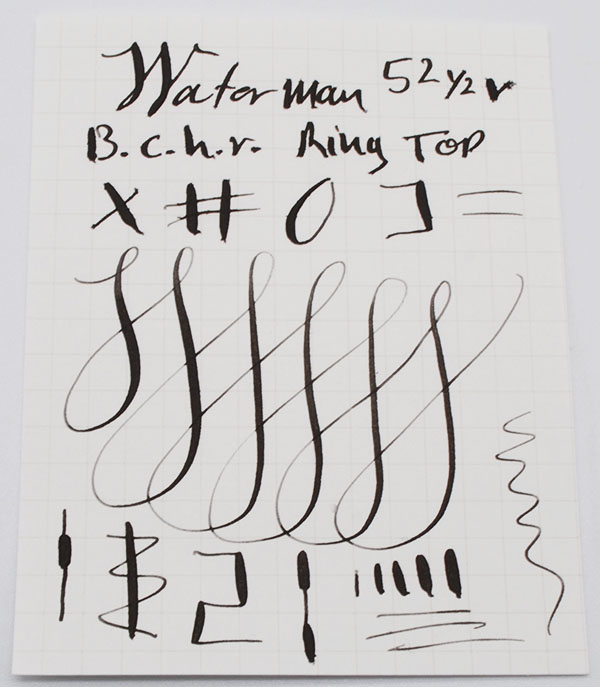 Waterman 52 1/2 v
B.c.h.r. Ring Top
X # O ] =